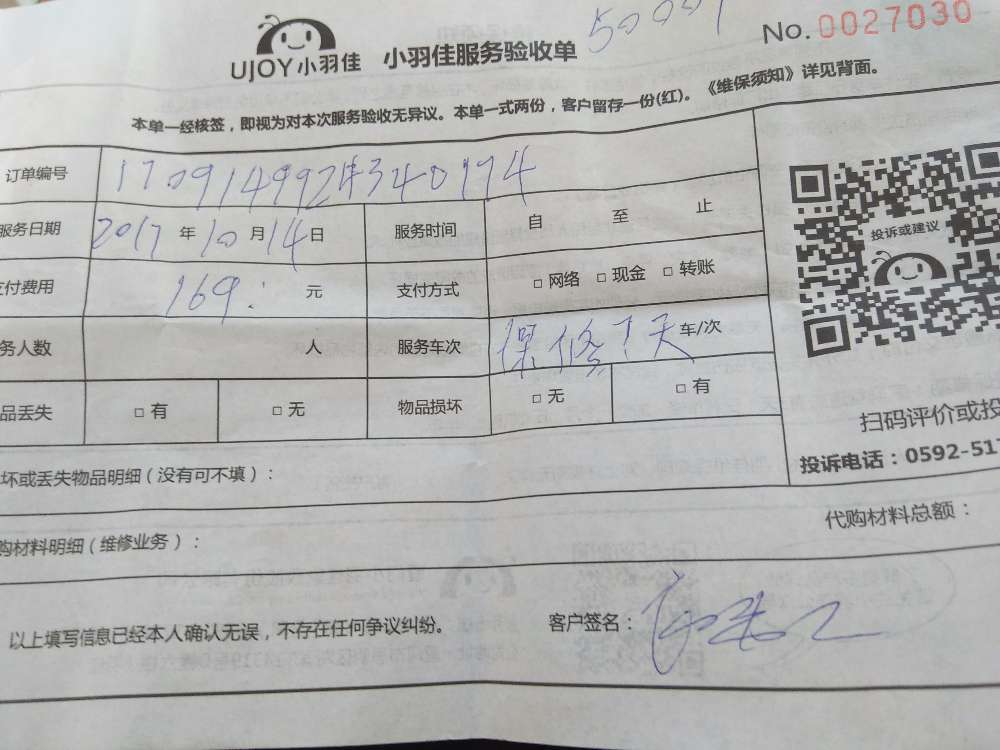 UJOY小羽佳 小羽佳服务验收单 No.0027030
本单一经核签，即视为对本次服务验收无异议。本单一式两份，客户留存一份(红)。《维保须知》详见背面。
订单编号
服务日期 2017年10月14日 服务时间 自 至 止
支付费用 169: 元 支付方式 □ 网络 □ 现金 □ 转账
务人数 人 服务车次 保修7天 车/次
品丢失 □ 有 □ 无 物品损坏 □ 无 □ 有
投诉或建议
扫码评价或投
投诉电话：0592-51
坏或丢失物品明细（没有可不填）：
购材料明细（维修业务）： 代购材料总额：
以上填写信息已经本人确认无误，不存在任何争议纠纷。 客户签名：